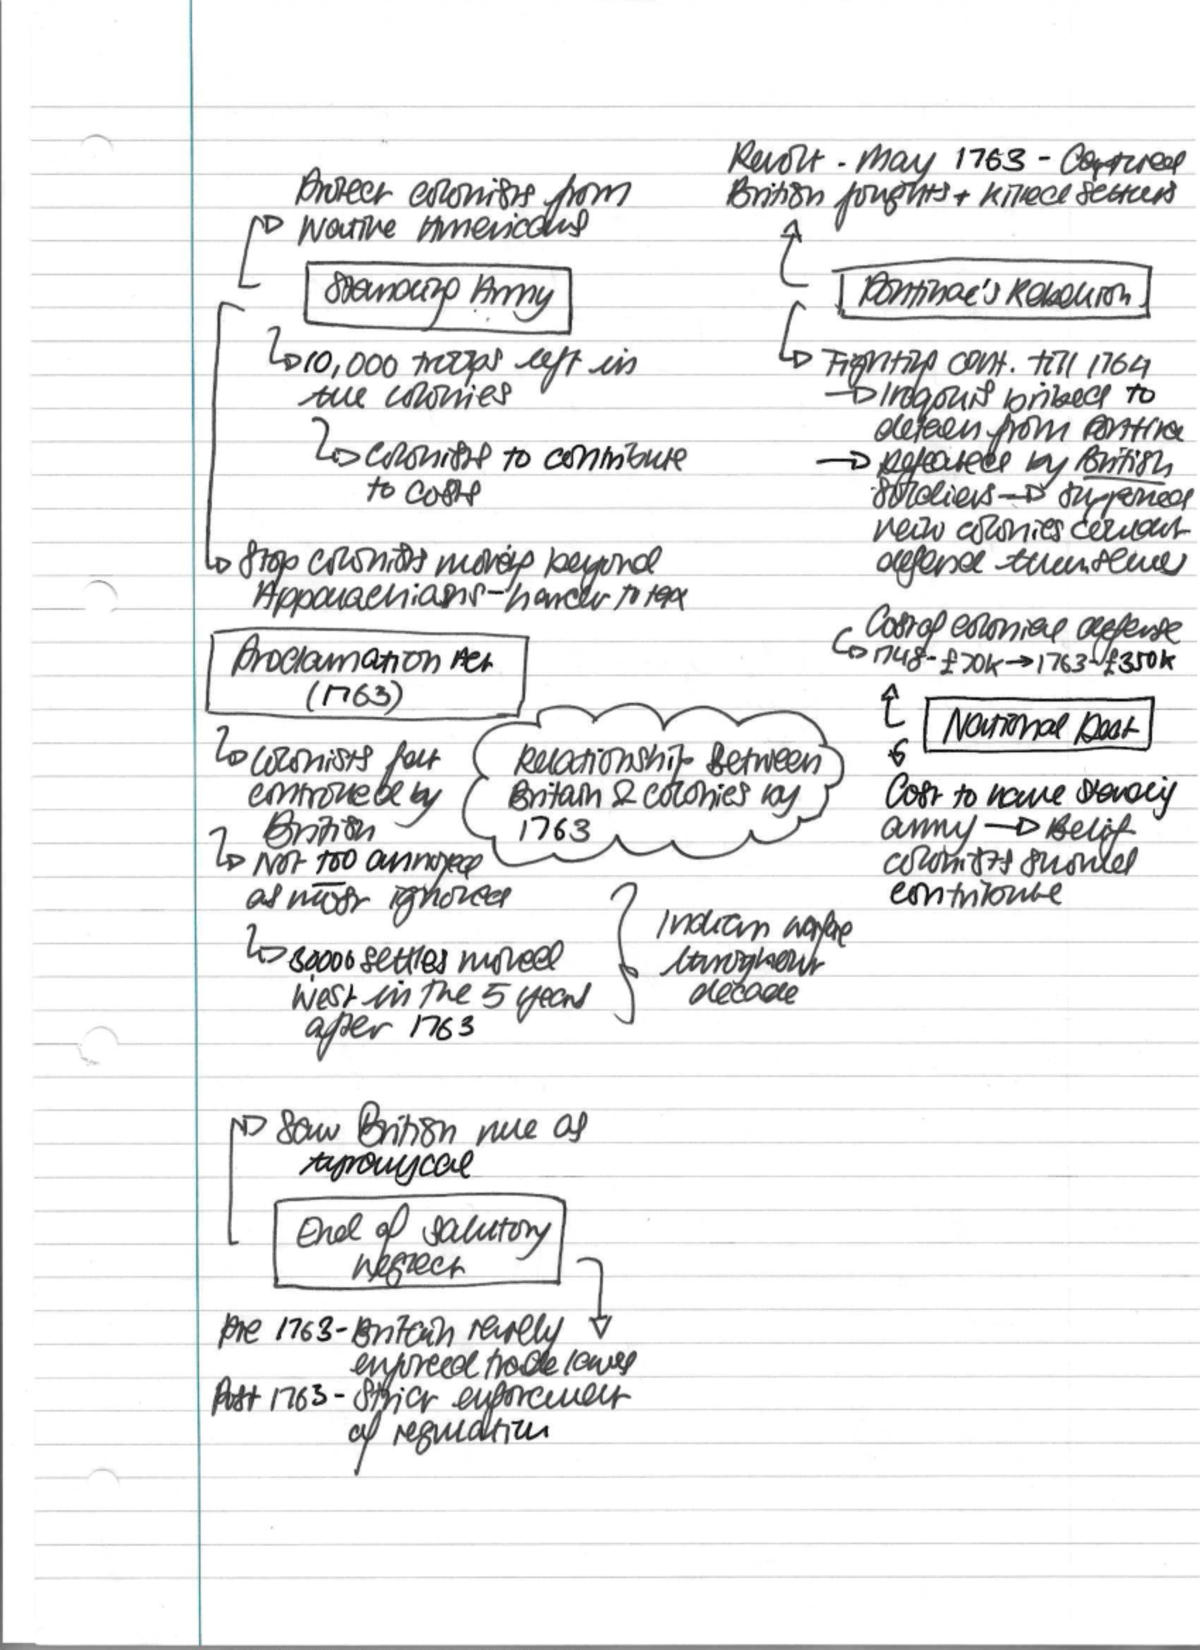 Protect colonists from
Native Americans
Standing Army
10,000 troops left in
the colonies
Colonists to contribute
to costs
Stop colonists moving beyond
Appalachians - harder to tax
Revolt - May 1763 - Captured
British foughts + killed settlers
Pontinac's Rebellion
Fighting cont. till 1764
→ Iroquois bribed to
from Pontiac
→ Defeated by British
soldiers → supposed
new colonies cannot
defend themselves
Cost of colonial defense
1748 - £70K → 1763 - £350K
National Debt
Cost to have standing
army → Belief
colonists should
contribute
Proclamation Act
(1763)
Colonists felt
controlled by
British
Not too annoyed
as most ignored
30000 settles moved
West in the 5 years
after 1763
Relationship Between
Britain & colonies by
1763
Indian warfare
throughout
decade
Saw British rule as
tyranycal
End of Salutory
neglect
Pre 1763 - Britain rarely
enforced trade laws
Post 1763 - Strict enforcement
of regulation